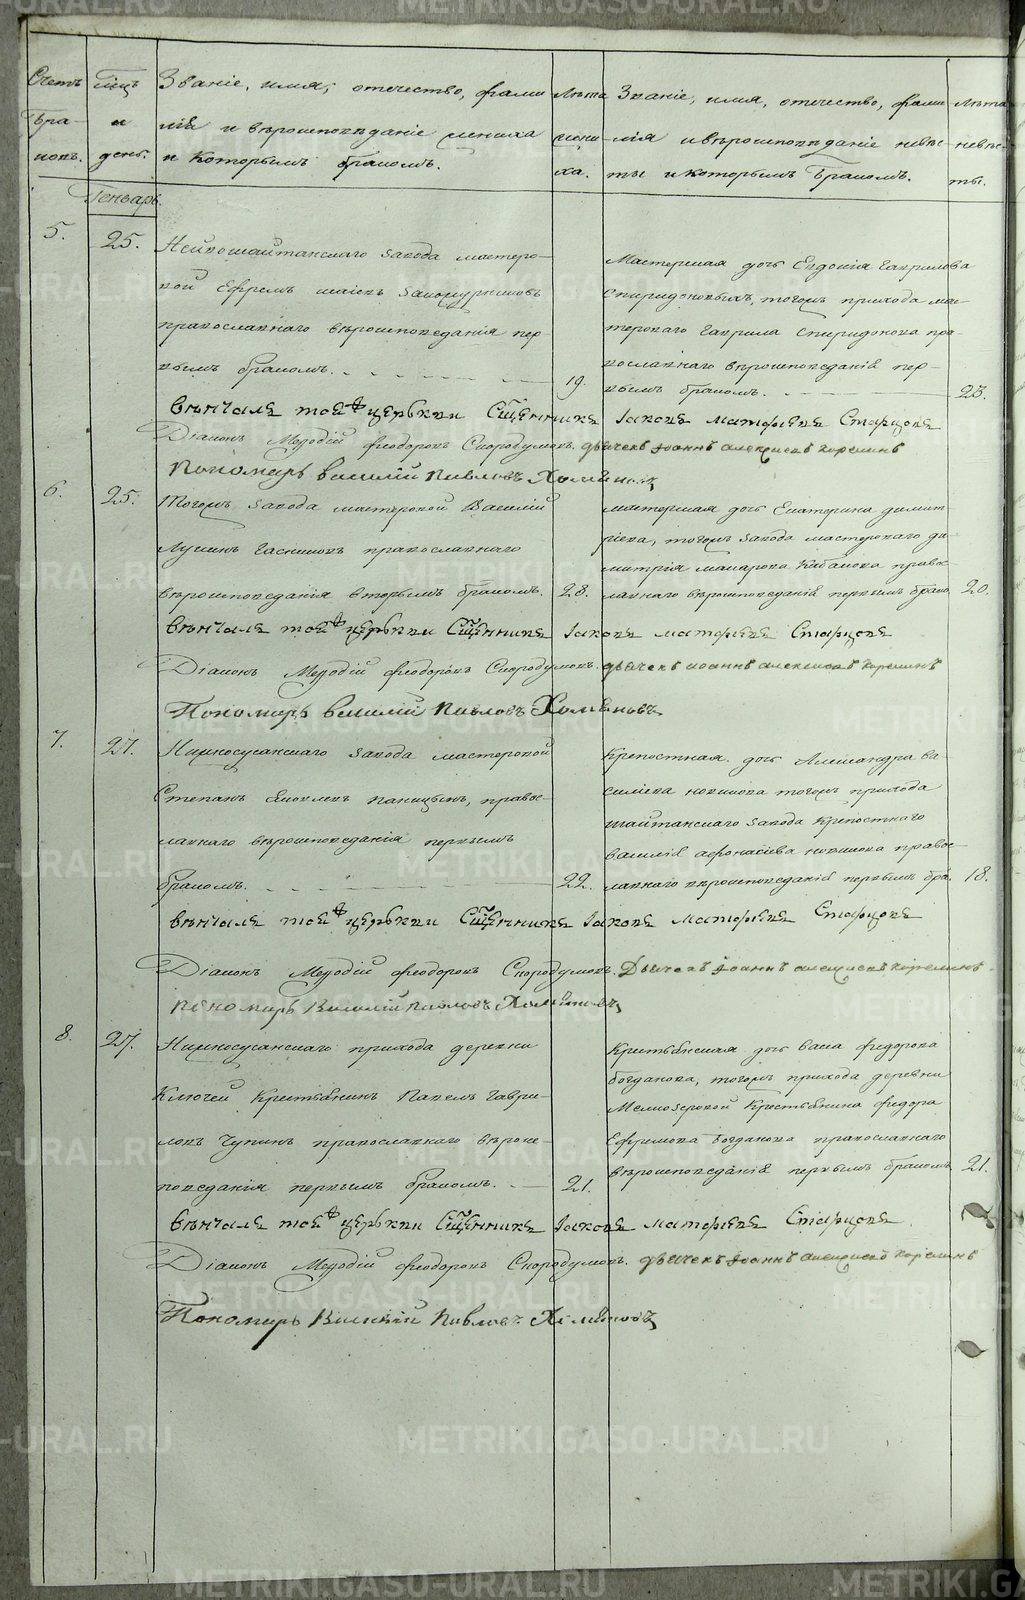 Счетъ
бра-
ковъ.
Мѣсяцъ
и
день.
Званіе, имя, отечество, фами-
лія и вѣроисповѣданіе жениха
и которымъ бракомъ.
Лѣта
жени-
ха.
Званіе, имя, отечество, фами-
лія и вѣроисповѣданіе невѣс-
ты и которымъ бракомъ.
Лѣта
невѣс-
ты.
Генварь.
5.
25.
Нейвошайтанскаго завода мастеро-
вой Ефремъ
православнаго вѣроисповеданія пер-
вымъ бракомъ.
19.
Мастерская дочь Евдокія Гаврилова
Спиридоновыхъ, тогожъ прихода мас-
терскаго Гаврила Спиридонова пра-
вославнаго вѣроисповеданія пер-
вымъ бракомъ.
23.
Вѣнчалъ тоя церкви Сщенникъ Іаковъ Матфѣевъ Старцовъ
Діаконъ Меѳодій Феодоровъ Скородумовъ. дьячекъ Іоаннъ Алексѣевъ Корелинъ
Пономарь Василій Павловъ
6.
25.
Тогожъ завода мастеровой Василій
православнаго
вѣроисповеданія вторымъ бракомъ.
28.
мастерская дочь Екатерина Димит-
ріева, тогожъ завода мастероваго Ди-
митрія Макарова Кабакова право-
славнаго вѣроисповеданія первымъ брако.
20.
Вѣнчалъ тоя церкви Сщенникъ Іаковъ Матфѣевъ Старцовъ
Діаконъ Меѳодій Феодоровъ Скородумовъ. дьячекъ Іоаннъ Алексѣевъ Корелинъ
Пономарь Василій Павловъ
7.
27.
Нижносусанскаго завода мастеровой
Степанъ Яковлевъ Паницынъ, право-
славнаго вѣроисповеданія первымъ
бракомъ.
22.
Крепостная дочь Александра Ва-
силіева Новикова тогожъ прихода
Шайтанскаго завода Крепостнаго
Василія Афонасіева Новикова право-
славнаго вѣроисповеданія первымъ бра.
18.
Вѣнчалъ тоя церкви Сщенникъ Іаковъ Матфѣевъ Старцовъ
Діаконъ Меѳодій Феодоровъ Скородумовъ. Дьячекъ Іоаннъ Алексѣевъ Корелинъ
Пономарь Василій Павловъ
8.
27.
Нижносусанскаго прихода деревни
Ключей Крестьянинъ Павелъ Гаври-
ловъ Чупинъ православнаго вѣроис-
поведанія первымъ бракомъ.
21.
Крестьянская дочь Васа Федорова
Богданова, тогожъ прихода деревни
Мелкозеровой Крестьянина Федора
Ефимова Богданова православнаго
вѣроисповеданія первымъ бракомъ
21.
Вѣнчалъ тоя церкви Сщенникъ Іаковъ Матфѣевъ Старцовъ
Діаконъ Меѳодій Феодоровъ Скородумовъ. дьячекъ Іоаннъ Алексѣевъ Корелинъ
Пономарь Василій Павловъ
METRIKI.GASO-URAL.RU